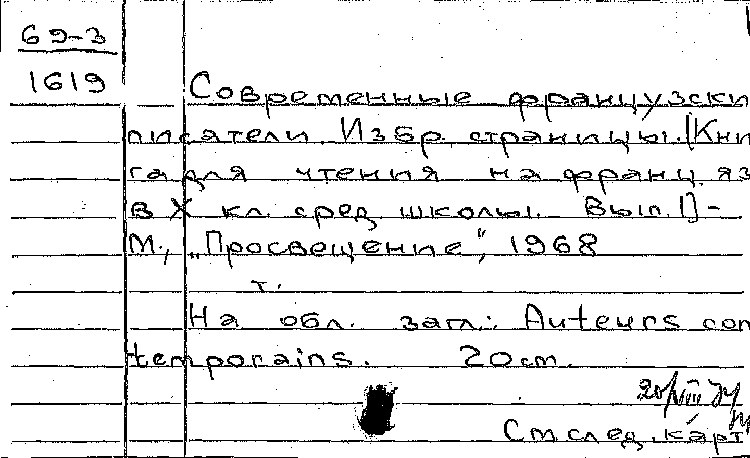 69-3
1619
Современные французски
писатели. Избр. страницы. [Кни
га для чтения на франц. яз
в X кл. сред. школы. Вып. 1] -
М., „Просвещение", 1968
т.
На обл. загл.: Auteurs con
temporains. 20 см.
См. след. карт